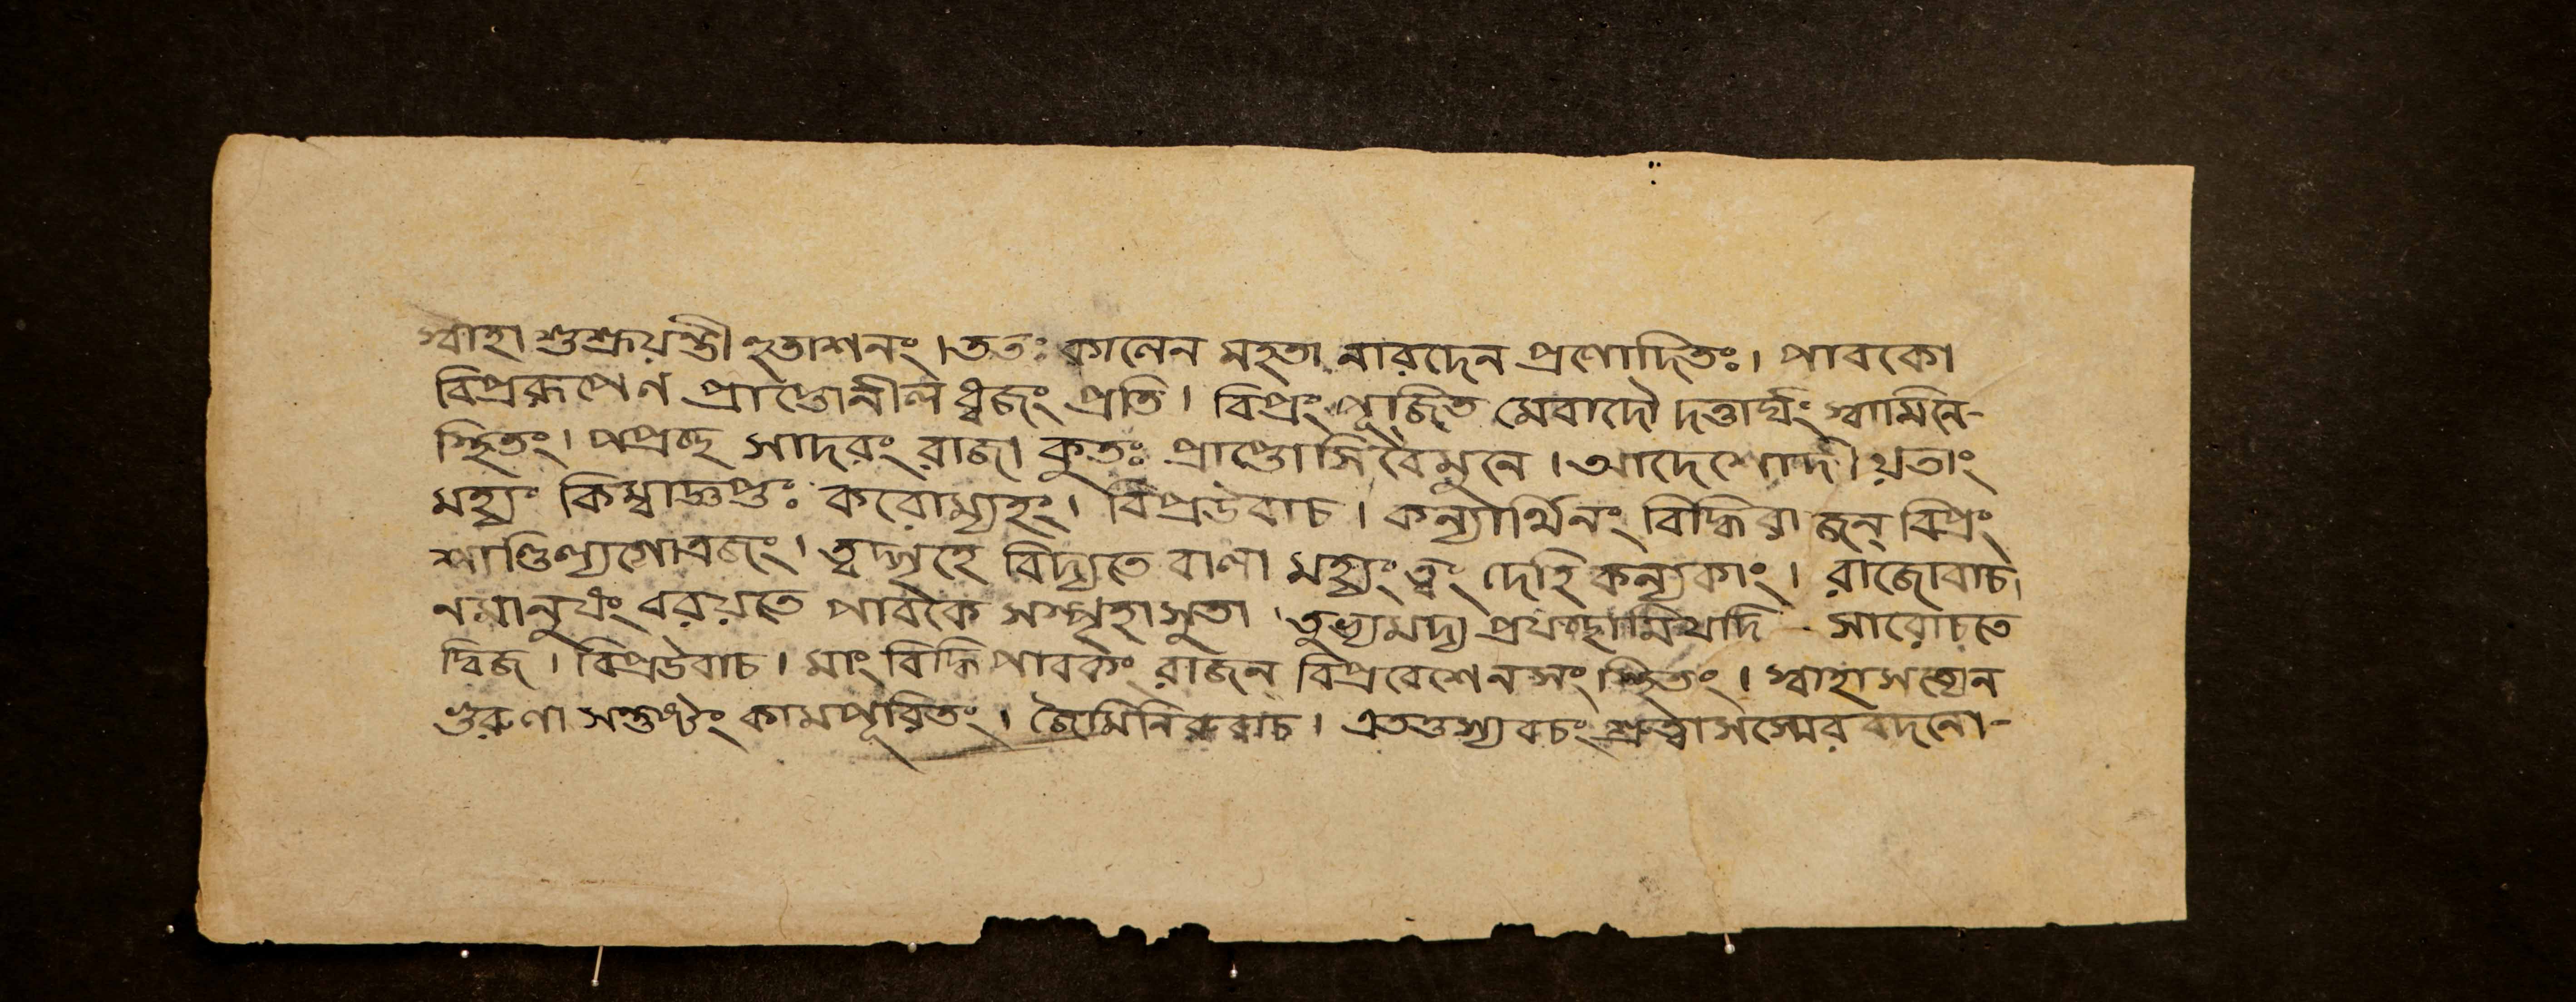 স্বাহা শুশ্রূয়ন্তী হুতাশনং । ততঃ কালেন মহতা নারদেন প্রণোদিতঃ । পাবকো
বিপ্ররূপেণ প্রাপ্তোনীলধ্বজং প্রতি । বিপ্রং পূজিত মেবাদৌ দত্তার্ঘ্যং স্বামিনে-
স্থিতং । পপ্রচ্ছ সাদরং রাজা কুতঃ প্রাপ্তোসি বৈমুনে । আদেশোদীয়তাং
মহ্যং কিম্বাজ্ঞপ্তঃ করোম্যহং । বিপ্রউবাচ । কন্যার্থিনং বিদ্ধি রাজন্ বিপ্রং
শাণ্ডিল্যগোত্রজং । ত্বদ্গৃহে বিদ্যতে বালা মহ্যং ত্বং দেহি কন্যকাং । রাজোবাচ
নমানুষং বরয়তে পাবকে সস্পৃহা সুতা । তুভ্যমদ্য প্রযচ্ছামি যদি সারোচতে
দ্বিজ । বিপ্রউবাচ । মাং বিদ্ধি পাবকং রাজন্ বিপ্রবেশেনসংস্থিতং । স্বাহাসত্যেন
গুরুণা সন্তুষ্টং কামপূরিতং । জৈমিনিরুবাচ । এতত্তস্যবচং শ্রুত্বা সস্মের বদনো-